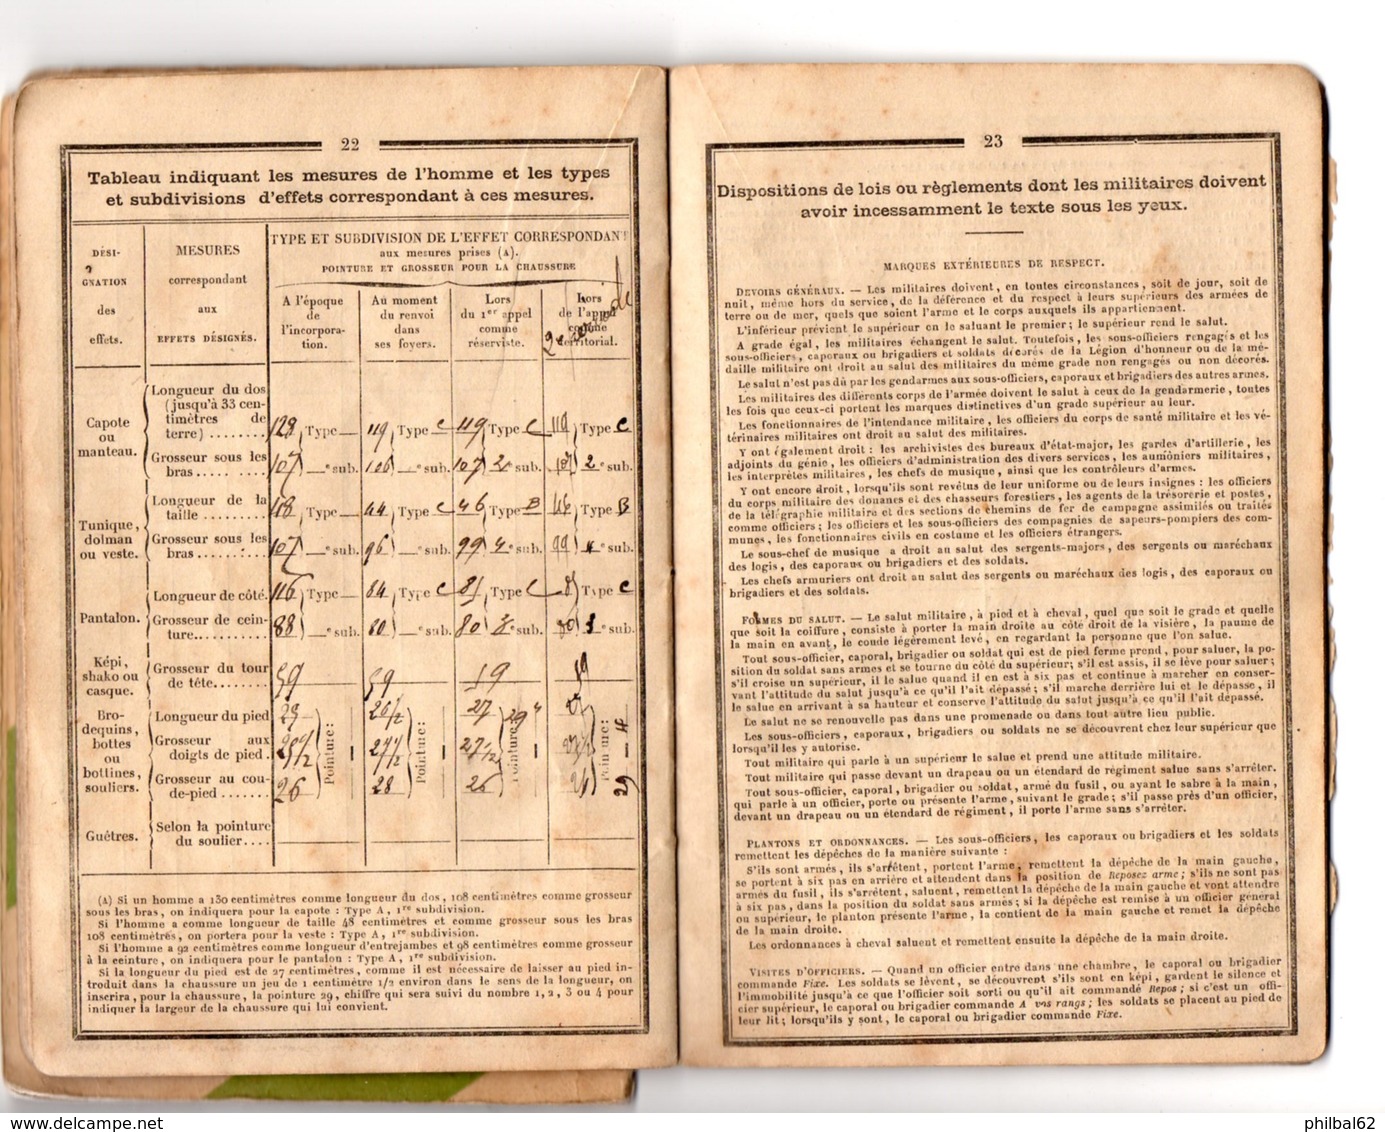 22
Tableau indiquant les mesures de l'homme et les types
et subdivisions d'effets correspondant à ces mesures.
DÉSI-
GNATION
des
effets.
MESURES
correspondant
aux
EFFETS DÉSIGNÉS.
TYPE ET SUBDIVISION DE L'EFFET CORRESPONDANT
aux mesures prises (A).
POINTURE ET GROSSEUR POUR LA CHAUSSURE
A l'époque
de
l'incorpora-
tion.
Au moment
du renvoi
dans
ses foyers.
Lors
du 1er appel
comme
réserviste.
Lors
de l'appel
comme
territorial.
Capote
ou
manteau.
Longueur du dos
(jusqu'à 33 cen-
timètres de
terre)........
128 Type — 119 Type C 119 Type C 110 Type C
Grosseur sous les
bras..... .....
107 —e sub. 106 —e sub. 107 2e sub. 107 2e sub.
Tunique,
dolman
ou veste.
Longueur de la
taille .........
118 Type — 44 Type C 46 Type B 46 Type B
Grosseur sous les
bras..........
107 —e sub. 96 —e sub. 99 4e sub. 99 4e sub.
Pantalon.
Longueur de côté.
116 Type — 84 Type C 81 Type C 81 Type C
Grosseur de cein-
ture..........
88 —e sub. 80 —e sub. 80 3e sub. 80 3e sub.
Képi,
shako ou
casque.
Grosseur du tour
de tête........
59 59 59 59
Bro-
dequins,
bottes
ou
bottines,
souliers.
Longueur du pied
Grosseur aux
doigts de pied.
Grosseur au cou-
de-pied .......
27
27 1/2
26 1/2
27 1/2
26 28 26 26
Pointure: Pointure: Pointure: 29 Pointure: 29
Guêtres.
Selon la pointure
du soulier....
(A) Si un homme a 130 centimètres comme longueur du dos, 108 centimètres comme grosseur
sous les bras, on indiquera pour la capote : Type A, 1re subdivision.
Si l'homme a comme longueur de taille 48 centimètres et comme grosseur sous les bras
108 centimètres, on portera pour la veste : Type A, 1re subdivision.
Si l'homme a 92 centimètres comme longueur d'entrejambes et 98 centimètres comme grosseur
à la ceinture, on indiquera pour le pantalon : Type A, 1re subdivision.
Si la longueur du pied est de 27 centimètres, comme il est nécessaire de laisser au pied in-
troduit dans la chaussure un jeu de 1 centimètre 1/2 environ dans le sens de la longueur, on
inscrira, pour la chaussure, la pointure 29, chiffre qui sera suivi du nombre 1, 2, 3 ou 4 pour
indiquer la largeur de la chaussure qui lui convient.
23
Dispositions de lois ou règlements dont les militaires doivent
avoir incessamment le texte sous les yeux.
MARQUES EXTÉRIEURES DE RESPECT.
DEVOIRS GÉNÉRAUX. — Les militaires doivent, en toutes circonstances, soit de jour, soit de
nuit, même hors du service, de la déférence et du respect à leurs supérieurs des armées de
terre ou de mer, quels que soient l'arme et le corps auxquels ils appartiennent.
L'inférieur prévient le supérieur en le saluant le premier; le supérieur rend le salut.
A grade égal, les militaires échangent le salut. Toutefois, les sous-officiers rengagés et les
sous-officiers, caporaux ou brigadiers et soldats décorés de la Légion d'honneur ou de la mé-
daille militaire ont droit au salut des militaires du même grade non rengagés ou non décorés.
Le salut n'est pas dû par les gendarmes aux sous-officiers, caporaux et brigadiers des autres armes.
Les militaires des différents corps de l'armée doivent le salut à ceux de la gendarmerie, toutes
les fois que ceux-ci portent les marques distinctives d'un grade supérieur au leur.
Les fonctionnaires de l'intendance militaire, les officiers du corps de santé militaire et les vé-
térinaires militaires ont droit au salut des militaires.
Y ont également droit : les archivistes des bureaux d'état-major, les gardes d'artillerie, les
adjoints du génie, les officiers d'administration des divers services, les aumôniers militaires,
les interprètes militaires, les chefs de musique, ainsi que les contrôleurs d'armes.
Y ont encore droit, lorsqu'ils sont revêtus de leur uniforme ou de leurs insignes : les officiers
du corps militaire des douanes et des chasseurs forestiers, les agents de la trésorerie et postes,
de la télégraphie militaire et des sections de chemins de fer de campagne assimilés ou traités
comme officiers; les officiers et les sous-officiers des compagnies de sapeurs-pompiers des com-
munes, les fonctionnaires civils en costume et les officiers étrangers.
Le sous-chef de musique a droit au salut des sergents-majors, des sergents ou maréchaux
des logis, des caporaux ou brigadiers et des soldats.
Les chefs armuriers ont droit au salut des sergents ou maréchaux des logis, des caporaux ou
brigadiers et des soldats.
FORMES DU SALUT. — Le salut militaire, à pied et à cheval, quel que soit le grade et quelle
que soit la coiffure, consiste à porter la main droite au côté droit de la visière, la paume de
la main en avant, le coude légèrement levé, en regardant la personne que l'on salue.
Tout sous-officier, caporal, brigadier ou soldat qui est de pied ferme prend, pour saluer, la po-
sition du soldat sans armes et se tourne du côté du supérieur; s'il est assis, il se lève pour saluer;
s'il croise un supérieur, il le salue quand il en est à six pas et continue à marcher en conser-
vant l'attitude du salut jusqu'à ce qu'il l'ait dépassé; s'il marche derrière lui et le dépasse, il
le salue en arrivant à sa hauteur et conserve l'attitude du salut jusqu'à ce qu'il l'ait dépassé.
Le salut ne se renouvelle pas dans une promenade ou dans tout autre lieu public.
Les sous-officiers, caporaux, brigadiers ou soldats ne se découvrent chez leur supérieur que
lorsqu'il les y autorise.
Tout militaire qui parle à un supérieur le salue et prend une attitude militaire.
Tout militaire qui passe devant un drapeau ou un étendard de régiment salue sans s'arrêter.
Tout sous-officier, caporal, brigadier ou soldat, armé du fusil, ou ayant le sabre à la main,
qui parle à un officier, porte ou présente l'arme, suivant le grade; s'il passe près d'un officier,
devant un drapeau ou un étendard de régiment, il porte l'arme sans s'arrêter.
PLANTONS ET ORDONNANCES. — Les sous-officiers, les caporaux ou brigadiers et les soldats
remettent les dépêches de la manière suivante :
S'ils sont armés, ils s'arrêtent, portent l'arme, remettent la dépêche de la main gauche,
se portent à six pas en arrière et attendent dans la position de Reposez arme; s'ils ne sont pas
armés du fusil, ils s'arrêtent, saluent, remettent la dépêche de la main gauche et vont attendre
à six pas, dans la position du soldat sans armes; si la dépêche est remise à un officier général
ou supérieur, le planton présente l'arme, la contient de la main gauche et remet la dépêche
de la main droite.
Les ordonnances à cheval saluent et remettent ensuite la dépêche de la main droite.
VISITES D'OFFICIERS. — Quand un officier entre dans une chambre, le caporal ou brigadier
commande Fixe. Les soldats se lèvent, se découvrent s'ils sont en képi, gardent le silence et
l'immobilité jusqu'à ce que l'officier soit sorti ou qu'il ait commandé Repos; si c'est un offi-
cier supérieur, le caporal ou brigadier commande A vos rangs; les soldats se placent au pied de
leur lit; lorsqu'ils y sont, le caporal ou brigadier commande Fixe.
www.delcampe.net
philbal62